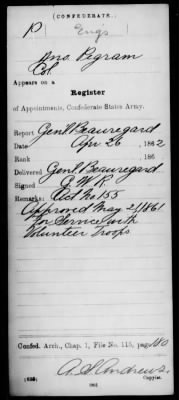 (CONFEDERATE.)
P Eng's
Jno. Pegram
Col.
Appears on a
Register
of Appointments, Confederate States Army.
Report Genl Beauregard
Date Apr 26, 1862
Rank 186
Delivered Genl Beauregard
Signed G W R
Remarks: Act No 155
Approved May 21/1861
for Service with
Volunteer Troops
Confed. Arch., Chap. 1, File No. 115, page 110
A. S. Andrews
Copyist.